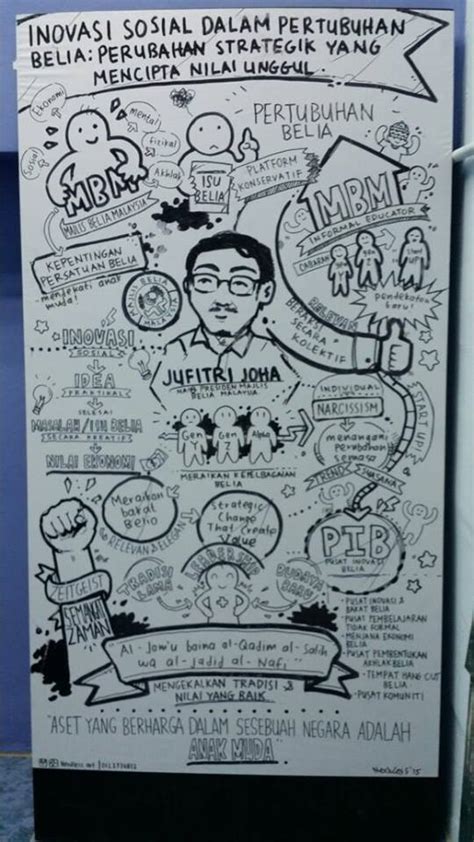 INOVASI SOSIAL DALAM PERTUBUHAN
BELIA: PERUBAHAN STRATEGIK YANG
MENCIPTA NILAI UNGGUL.
Ekonomi
Mental
fizikal
Sosial
Akhlak
MBM
MAJLIS BELIA MALAYSIA
ISU
BELIA
PERTUBUHAN
BELIA
PLATFORM
KONSERVATIF
MBM
INFORMAL EDUCATOR
CABARAN
KEPENTINGAN
PERSATUAN BELIA
mendekati anak
muda!
MAJLIS BELIA
pendekatan
baru!
RELEVAN
BERAKSI
SECARA
KOLEKTIF
INOVASI
SOSIAL
IDEA
PRAKTIKAL
SELESAI
MASALAH/ISU BELIA
SECARA KREATIF
NILAI EKONOMI
JUFITRI JOHA
PRESIDEN MAJLIS
BELIA MALAYSIA
Gen
Gen
Alpha
MERAIKAN KEPELBAGAIAN
BELIA
INDIVIDUAL
NARCISSISM
START UP
menangani
perubahan
semasa
TREND
Meraikan
bakat
Belia
RELEVAN & ELEGAN
Strategic
Change
That Create
Value
PIB
PUSAT INOVASI
BELIA
ZEITGEIST
SEMANGAT
ZAMAN
TRADISI
LAMA
LEADERSHIP
BUDAYA
BARU
- PUSAT INOVASI &
BAKAT BELIA
- PUSAT PEMBELAJARAN
TIDAK FORMAL
- MENJANA EKONOMI
BELIA
- PUSAT PEMBENTUKAN
AKHLAK BELIA
- TEMPAT HANG OUT
BELIA
- PUSAT KOMUNITI
Al-Jam'u baina al-Qadim al-Salih
wa al-Jadid al-Nafi'"
MENGEKALKAN TRADISI &
NILAI YANG BAIK
"ASET YANG BERHARGA DALAM SESEBUAH NEGARA ADALAH
ANAK MUDA"